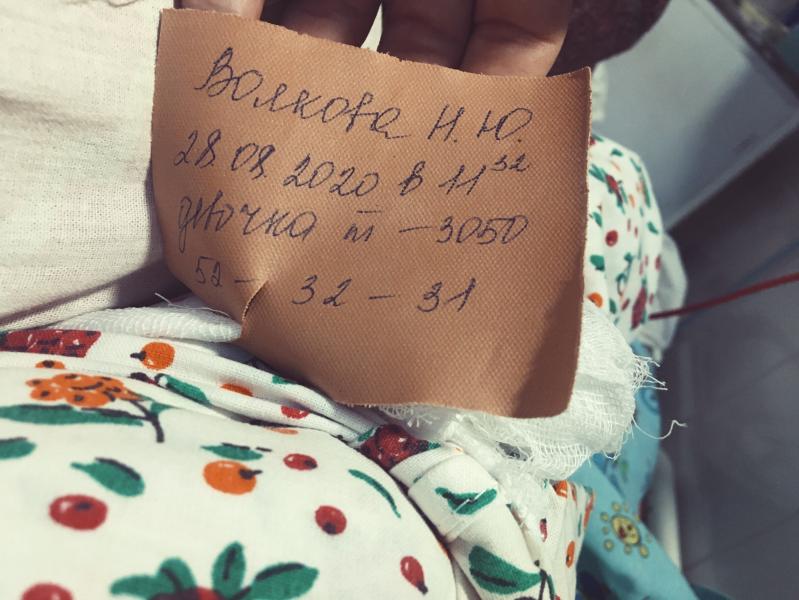 Волкова Н.Ю.
28.08.2020 в 11³²
девочка m – 3050
52 – 32 – 31